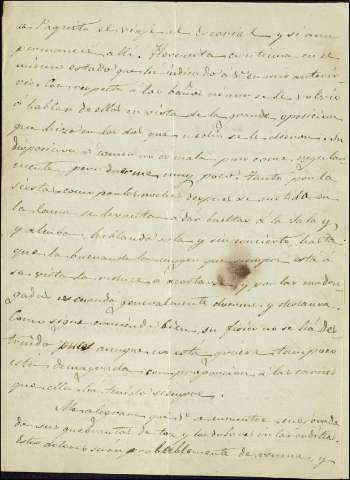 a Paquita el viaje al Escorial y si aun
permanece alli. Florencia continua en el
mismo estado que he indicado a V. en mis anterio-
res. Con respecto a los baños no se le volvio
a hablar de ellos en vista de la grande oposicion
que hizo en los dos que recibio se le dieron. Su
disposicion a comer no es mala, pues come regular-
mente, pero duerme muy poco: tanto por la
siesta como por las noches despues de metida en
la cama se levanta a dar vueltas a la sala y
alcoba hablando sola y sin concierto, hasta
que la buena de la muger que siempre está a
su vista la reduce a acostarse, y por las madru-
gadas es cuando generalmente duerme y descansa.
Como sigue comiendo bien, su fisico no se há des-
truido, pues aunque no está gruesa tampoco
está demagrada con proporcion a las carnes
que ella ha tenido siempre.
Me alegrare que V. se encuentre mejorada
de sus quebrantos de tos y los dolores en las rodillas
Estos dolores serán probablemente de reuma, y